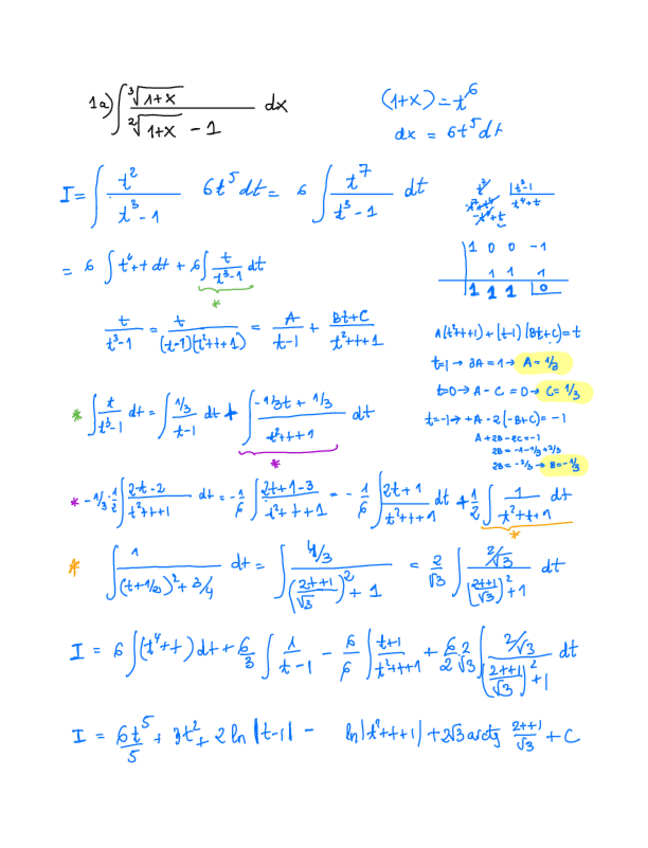 1a) ∫ ∛(1+x) / (²√(1+x) - 1) dx (1+x) = t^6
dx = 6t^5 dt
I = ∫ t^2/(t^3-1) 6t^5 dt = 6 ∫ t^7/(t^3-1) dt
1 0 0 -1
1 1 1
1 1 1 0
= 6 ∫ t^4+t dt + 6 ∫ t/(t^3-1) dt
*
t/(t^3-1) = t/((t-1)(t^2+t+1)) = A/(t-1) + (Bt+C)/(t^2+t+1) A(t^2+t+1) + (t-1)(Bt+C) = t
t=1 → 3A=1 → A=1/3
t=0 → A-C=0 → C=1/3
* ∫ t/(t^3-1) dt = ∫ (1/3)/(t-1) dt + ∫ (-1/3t + 1/3)/(t^2+t+1) dt t=-1 → +A-2(-B+C) = -1
A+2B-2C=-1
2B = -1-1/3+2/3
2B = -2/3 → B=-1/3
*
* -1/3·1/2 ∫ (2t-2)/(t^2+t+1) dt = -1/6 ∫ (2t+1-3)/(t^2+t+1) = -1/6 ∫ (2t+1)/(t^2+t+1) dt + 1/2 ∫ 1/(t^2+t+1) dt
*
* ∫ 1/((t+1/2)^2+3/4) dt = ∫ (4/3)/(((2t+1)/√3)^2 + 1) = 2/√3 ∫ (2/√3)/(((2t+1)/√3)^2+1) dt
I = 6 ∫ (t^4+t) dt + 6/3 ∫ 1/(t-1) - 6/6 ∫ (t+1)/(t^2+t+1) + 6/2 2/√3 ∫ (2/√3)/(((2t+1)/√3)^2+1) dt
I = 6t^5/5 + 3t^2 + 2 ln |t-1| - ln|t^2+t+1| + 2√3 arctg (2t+1)/√3 + C